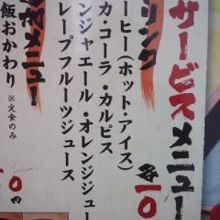 サービスメニュー
リンク
ーヒー(ホット・アイス)
カ・コーラ・カルピス
ンジャエール・オレンジジュー
レープフルーツジュース
各10
メニュー
飯おかわり
※定食のみ
0円